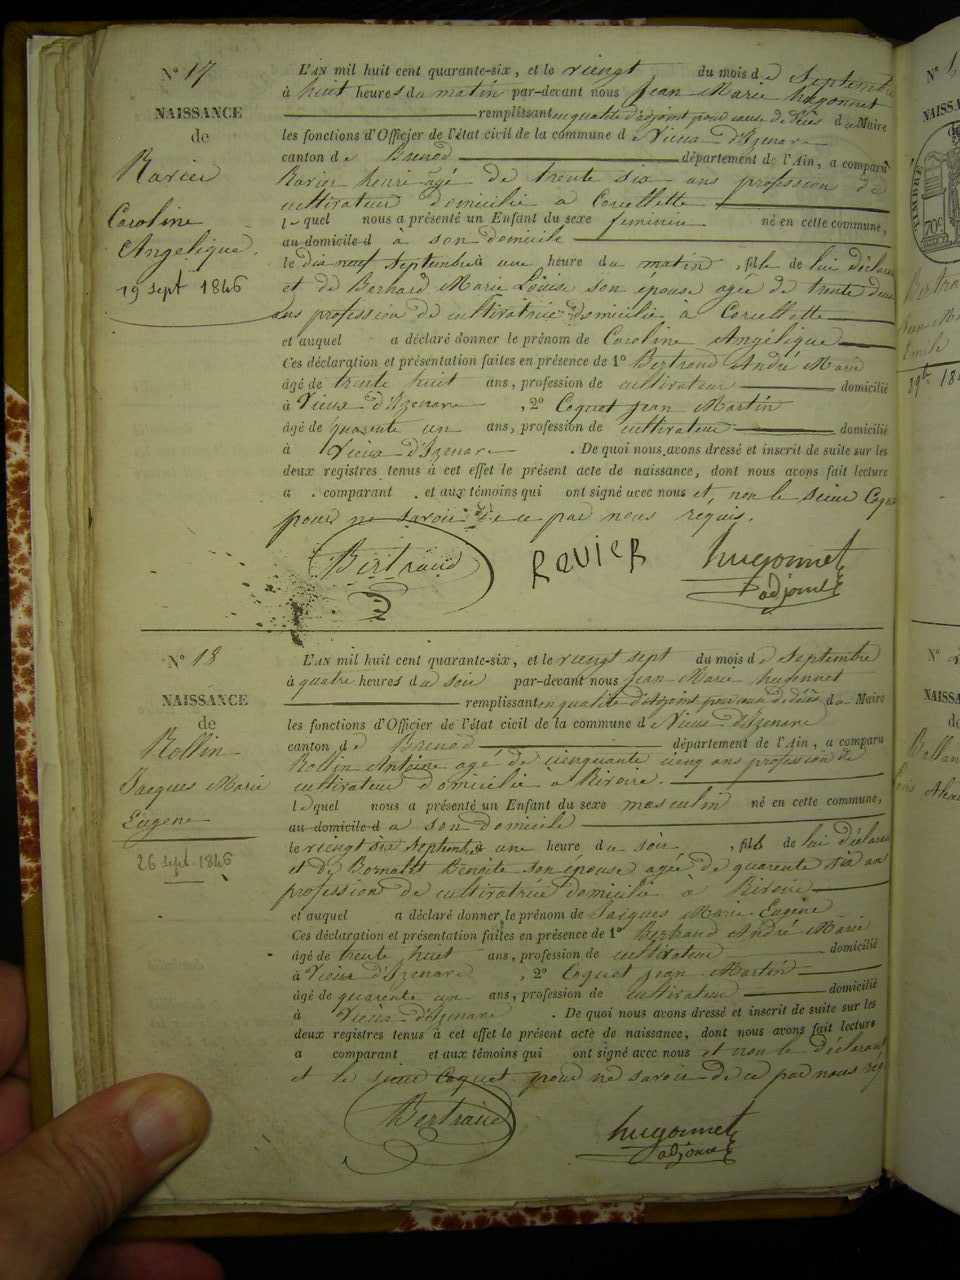 N° 17
NAISSANCE
de
Ravier
Caroline
Angélique.
19 sept 1846
L'AN mil huit cent quarante-six, et le vingt du mois de Septembre
à huit heures du matin par-devant nous Jean Marie hugonnet
remplissant en qualité d'adjoint pour cause de décès du Maire
les fonctions d'Officier de l'état civil de la commune de Vieux d'Izenave
canton de Brenod département de l'Ain, a comparu
Ravier henri âgé de trente six ans profession de
cultivateur domicilié à Corcellette
lequel nous a présenté un Enfant du sexe feminin né en cette commune,
au domicile d à son domicile
le dix neuf Septembre à une heure du matin, fille de lui déclarant
et de Berhard Marie Louise son épouse agée de trente deux
ans profession de cultivatrice domicilié à Corcellette
et auquel a déclaré donner le prénom de Caroline Angélique
Ces déclaration et présentation faites en présence de 1° Bertraud André Marie
âgé de trente huit ans, profession de cultivateur domicilié
à Vieux d'Izenave, 2° Coquet jean Martin
âgé de quarente un ans, profession de cultivateur domicilié
à Vieux d'Izenave. De quoi nous avons dressé et inscrit de suite sur les
deux registres tenus à cet effet le présent acte de naissance, dont nous avons fait lecture
a comparant et aux témoins qui ont signé avec nous et non le sieur Coquet
pour ne savoir de ce par nous requis.
Bertraud RAVIER hugonnet
adjoint
N° 18
NAISSANCE
de
Rollin
Jacques Marie
Eugene
26 sept. 1846
L'AN mil huit cent quarante-six, et le vingt sept du mois de Septembre
à quatre heures du soir par-devant nous Jean Marie hugonnet
remplissant en qualité d'adjoint pour cause de décès du Maire
les fonctions d'Officier de l'état civil de la commune de Vieux d'Izenave
canton de Brenod département de l'Ain, a comparu
Rollin Antoine agé de cinquante cinq ans profession de
cultivateur domicilié à Biroire.
lequel nous a présenté un Enfant du sexe masculin né en cette commune,
au domicile d a son domicile
le vingt six Septembre à une heure du soir, fils de lui déclarant
et de Benoite son épouse agée de quarente six ans
profession de cultivatrice domicilié à Biroire
et auquel a déclaré donner le prénom de Jacques Marie Eugène
Ces déclaration et présentation faites en présence de 1° Bertraud André Marie
âgé de trente huit ans, profession de cultivateur domicilié
à Vieux d'Izenave, 2° Coquet jean Martin
âgé de quarente un ans, profession de cultivateur domicilié
à Vieux d'Izenave. De quoi nous avons dressé et inscrit de suite sur les
deux registres tenus à cet effet le présent acte de naissance, dont nous avons fait lecture
a comparant et aux témoins qui ont signé avec nous et non le déclarant
et le sieur Coquet pour ne savoir de ce par nous
Bertraud hugonnet
adjoint